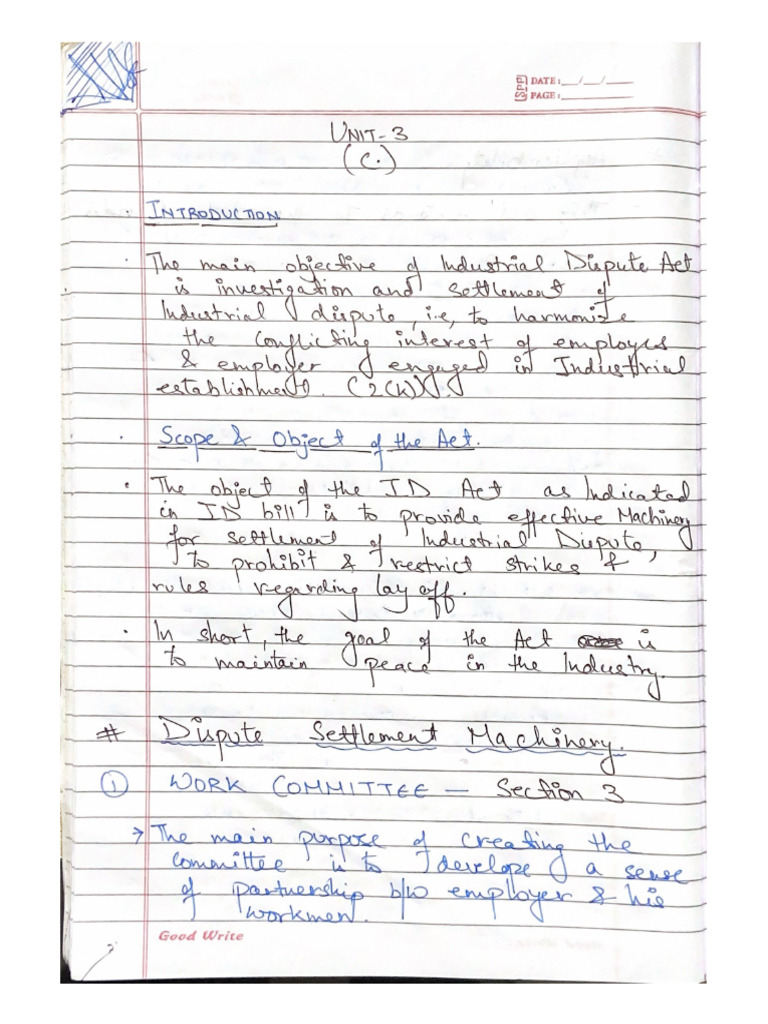 SPP DATE: __/__/____
PAGE: ________
UNIT-3
(C.)
INTRODUCTION
The main objective of Industrial Dispute Act
is investigation and settlement of
Industrial dispute, i.e, to harmonize
the conflicting interest of employees
& employer engaged in Industrial
establishment. (2(k)).
Scope & Object of the Act.
• The object of the ID Act as Indicated
in ID bill is to provide effective Machinery
for settlement of Industrial Dispute,
to prohibit & restrict strikes &
rules regarding lay off.
• In short, the goal of the Act is
to maintain peace in the Industry.
# Dispute Settlement Machinery.
① WORK COMMITTEE — Section 3
→ The main purpose of creating the
committee is to develope a sense
of partnership b/w employer & his
workmen.
Good Write